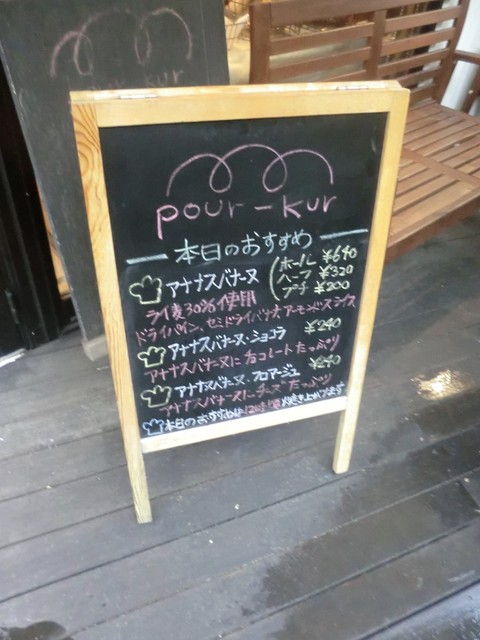 pour-kur
pour-kur
本日のおすすめ
アナナスバナーヌ
ホール ¥640
ハーフ ¥320
プチ ¥200
ライ麦30%使用
ドライパイン、セミドライバナナ、アーモンドスライス
アナナスバナーヌ・ショコラ ¥240
アナナスバナーヌにチョコレートたっぷり
アナナスバナーヌ・フロマージュ ¥240
アナナスバナーヌにチーズたっぷり
本日のおすすめは12時頃焼き上がります